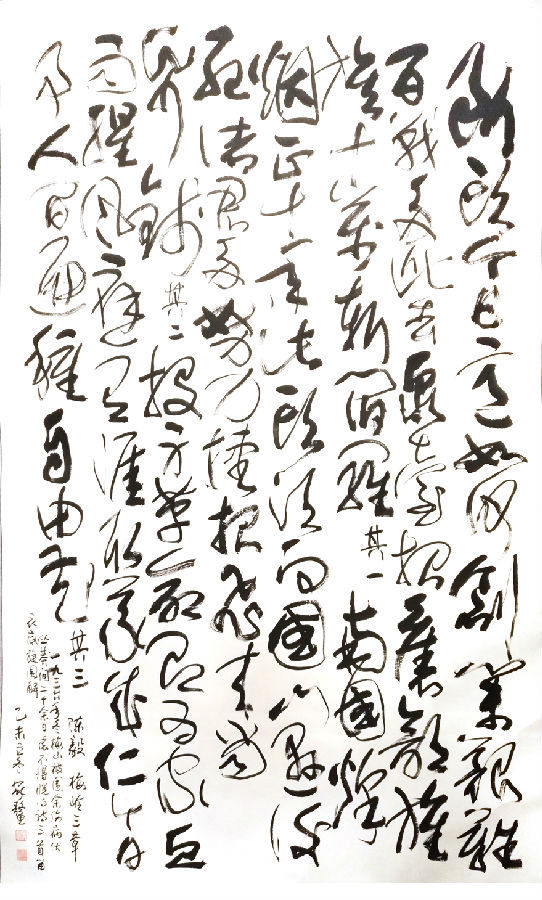 断头今日意如何创业艰难
百战多此去泉台招旧部旌
旗十万斩阎罗 其一 南国烽
烟正十年此头须向国门悬后
死诸君多努力捷报飞来当
纸钱 其二 投身革命即为家血
雨腥风应有涯取义成仁今日
事人间遍种自由花 其三 陈毅 梅岭三章
一九三六年冬梅山被围余伤病伏
丛莽间二十余日虑不得脱得诗三首留
衣底旋围解 乙未